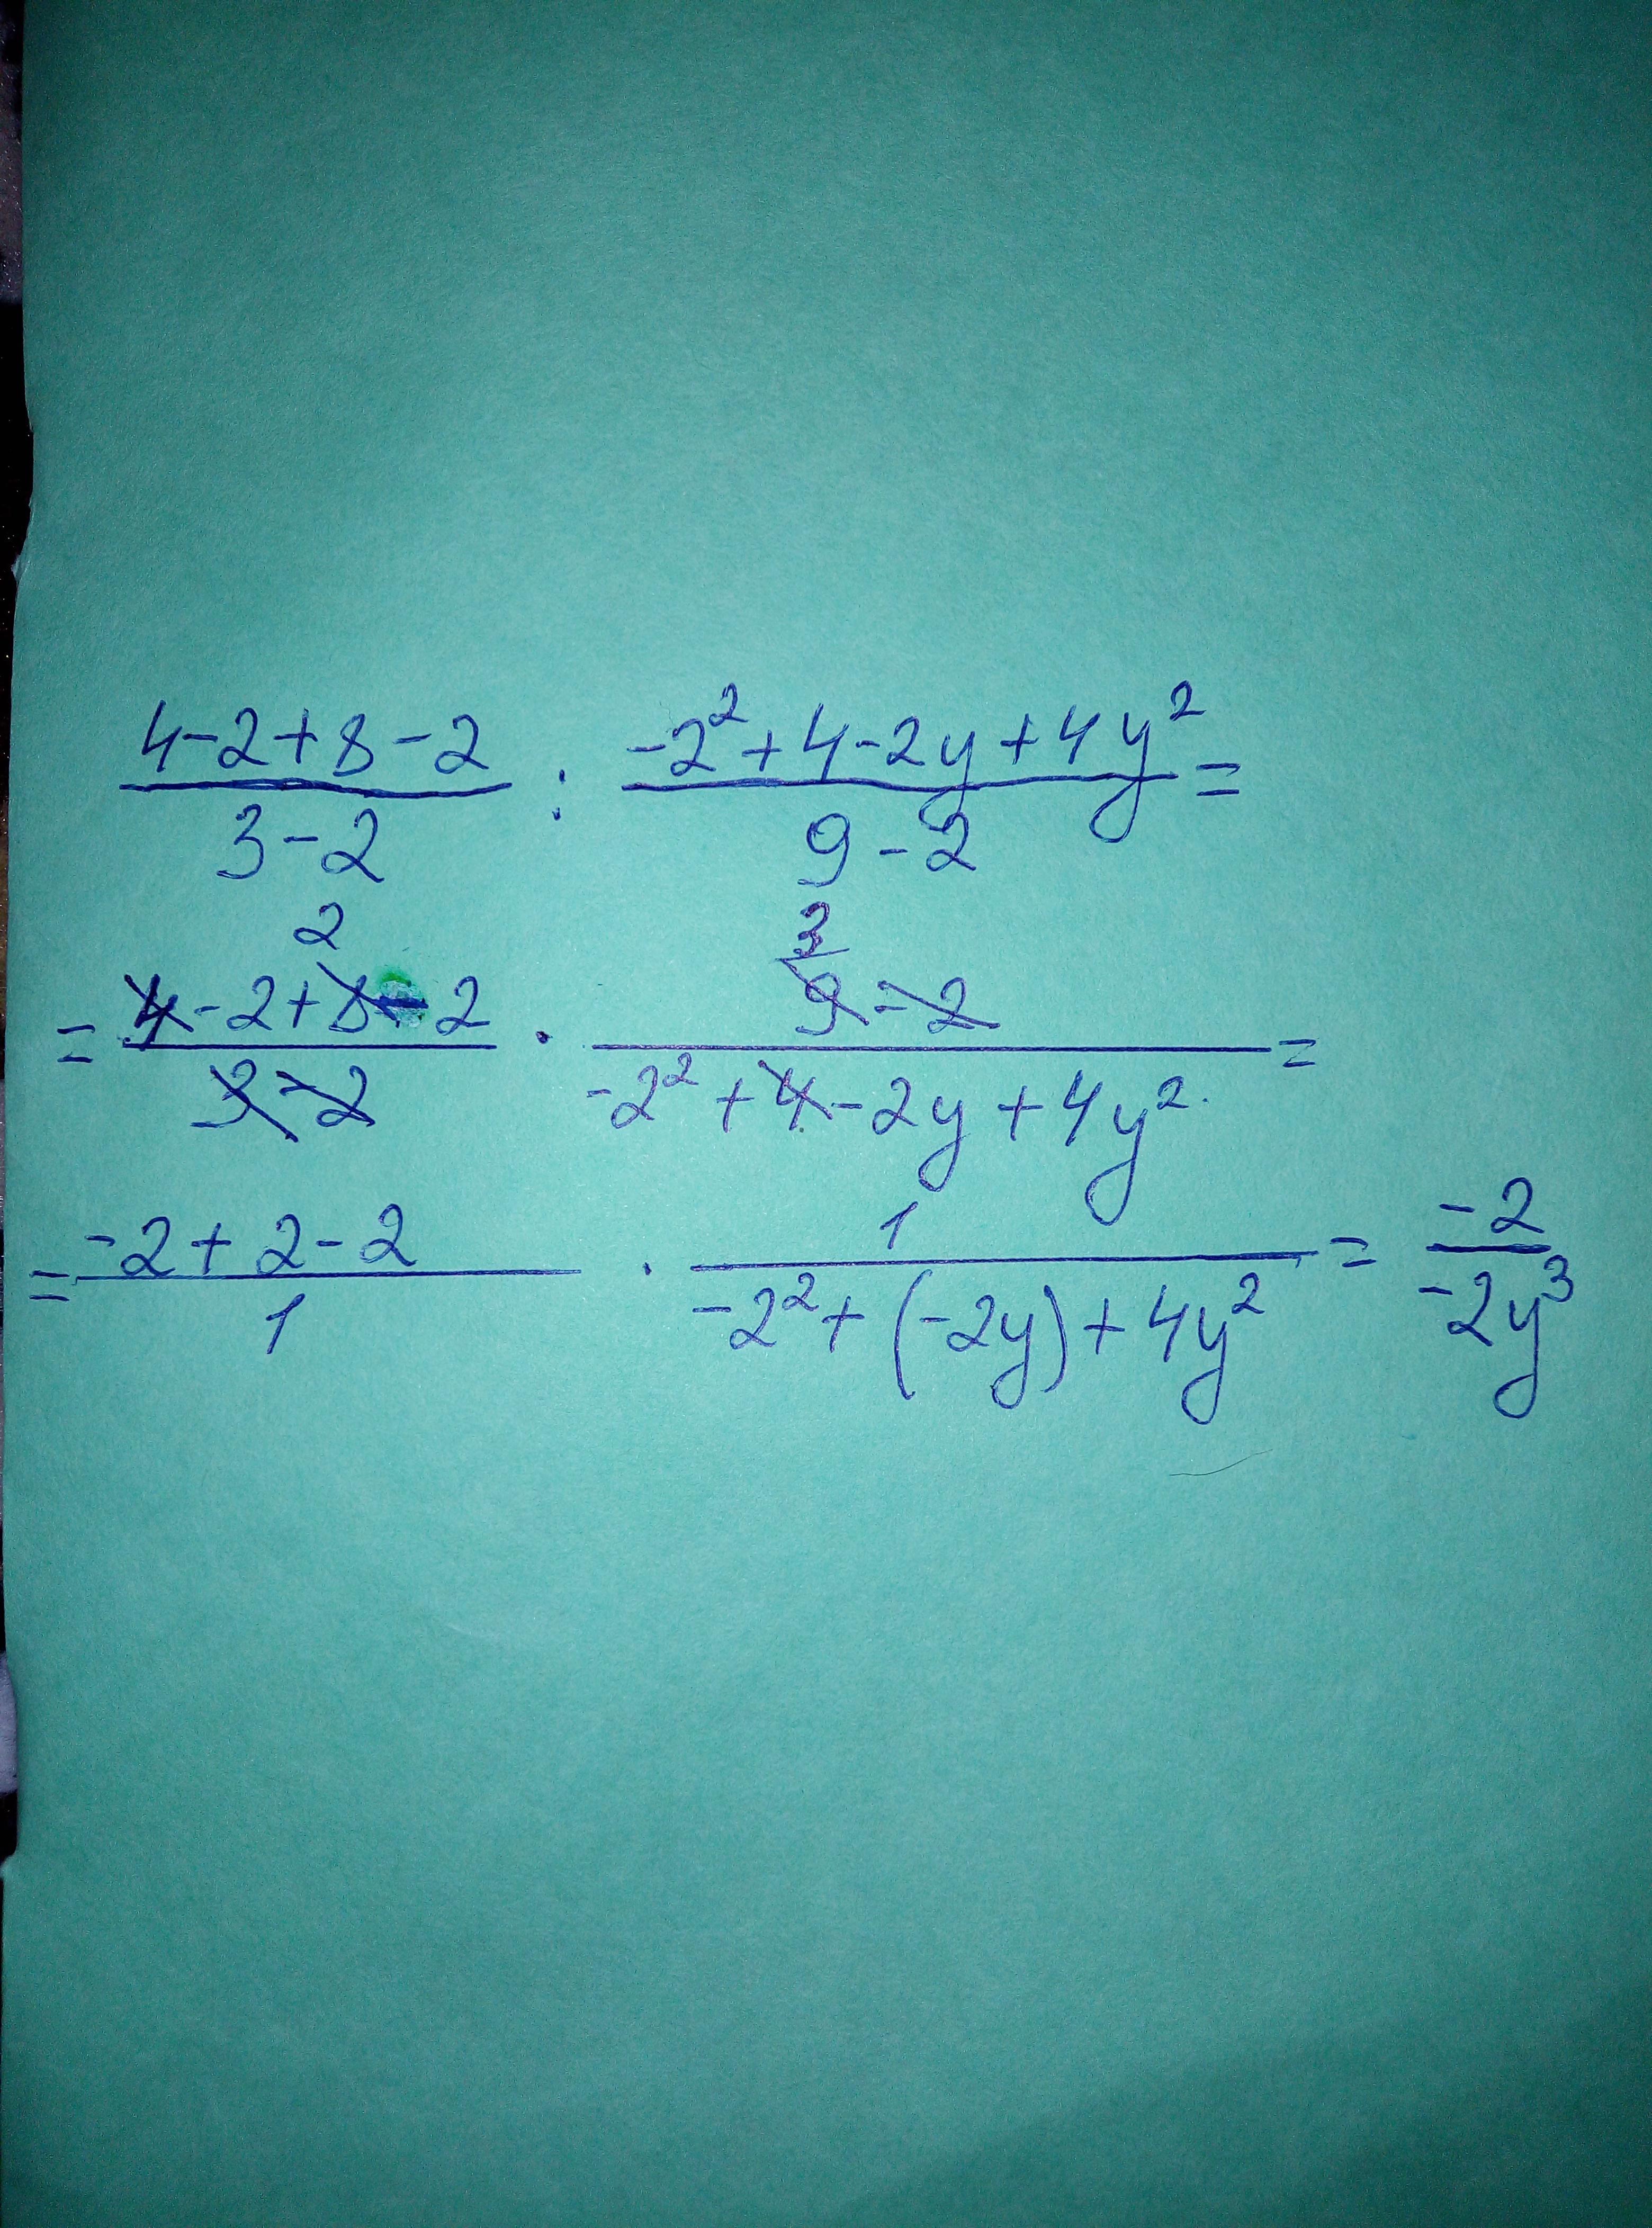 (4-2+8-2)/(3-2) : (-2²+4-2y+4y²)/(9-2) =
= (4-2+8-2)/(3-2) · (9-2)/(-2²+4-2y+4y²) =
= (-2+2-2)/1 · 1/(-2²+(-2y)+4y²) = -2/(-2y³)